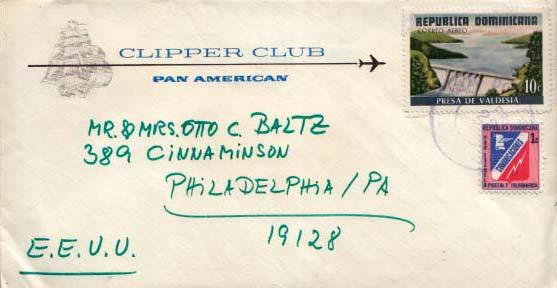 CLIPPER CLUB
PAN AMERICAN
REPUBLICA DOMINICANA
CORREO AEREO
10¢
PRESA DE VALDESIA
REPUBLICA DOMINICANA
1¢
MR. & MRS. OTTO C. BALTZ
389 CINNAMINSON
PHILADELPHIA / PA
19128
E.E.U.U.